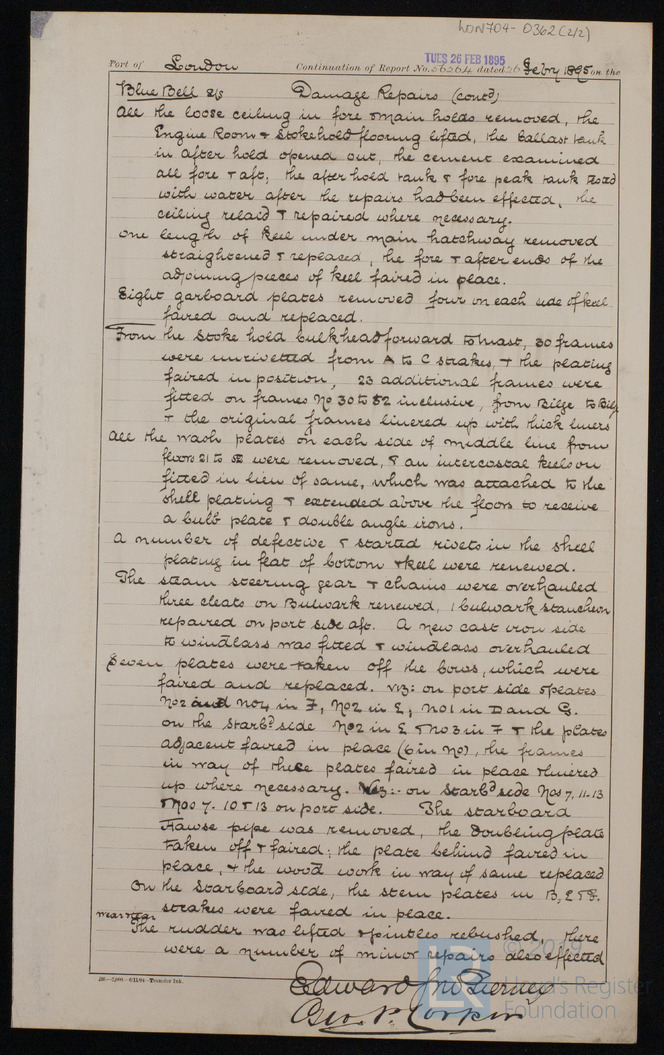 LON704-0362(2/2)
TUES 26 FEB 1895
Port of London Continuation of Report No. 56564 dated 26 Febry 1895 on the
Blue Bell S/S Damage Repairs (contd)
All the loose ceiling in fore & main holds removed, the
Engine Room & Stokehold flooring lifted, the ballast tank
in after hold opened out, the cement examined
all fore & aft; the after hold tank & fore peak tank tested
with water after the repairs had been effected, the
ceiling relaid & repaired where necessary.
One length of keel under main hatchway removed
straightened & replaced, the fore & after ends of the
adjoining pieces of keel faired in place.
Eight garboard plates removed four on each side of keel
faired and replaced.
From the Stoke hold bulkhead forward to mast, 30 frames
were unrivetted from A to C strakes, & the plating
faired in position, 23 additional frames were
fitted on frames No 30 to 52 inclusive, from Bilge to Bilge
& the original frames linered up with thick liners
All the wash plates on each side of middle line from
floors 21 to 52 were removed, & an intercostal keelson
fitted in lieu of same, which was attached to the
shell plating & extended above the floors to receive
a bulb plate & double angle irons.
A number of defective & started rivets in the shell
plating in flat of bottom & keel were renewed.
The steam steering gear & chains were overhauled
three cleats on Bulwark renewed, 1 bulwark stancheon
repaired on port side aft. A new cast iron side
to windlass was fitted & windlass overhauled
Seven plates were taken off the bows, which were
faired and replaced. viz: on port side plates
No 2 and No 4 in F, No 2 in E, No 1 in D and G.
on the Starbd side No 2 in E & No 3 in F & the plates
adjacent faired in place (6 in No), the frames
in way of these plates faired in place & linered
up where necessary. Viz:- on Starbd side Nos 7, 11-13
& Nos 7-10 & 13 on port side. The starboard
Hawse pipe was removed, the doubling plate
taken off & faired; the plate behind faired in
place, & the wood work in way of same replaced
On the Starboard side, the stem plates in B, E & F.
strakes were faired in place.
The rudder was lifted & pintles rebushed, there
were a number of minor repairs also effected
© 2019
Lloyd's Register
Foundation